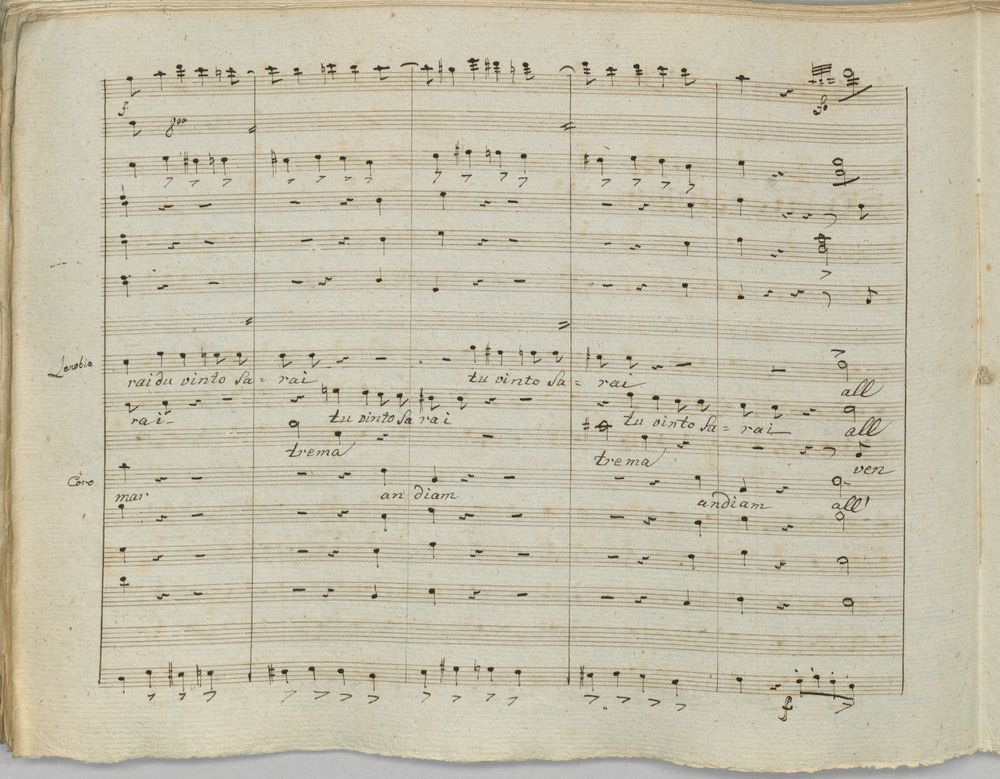 f.
8va
fo
Zenobia
rai du vinto sa = rai tu vinto sa = rai all
rai tu vinto sa rai tu vinto sa = rai all
trema trema ven
Coro
mar an diam andiam all'
f